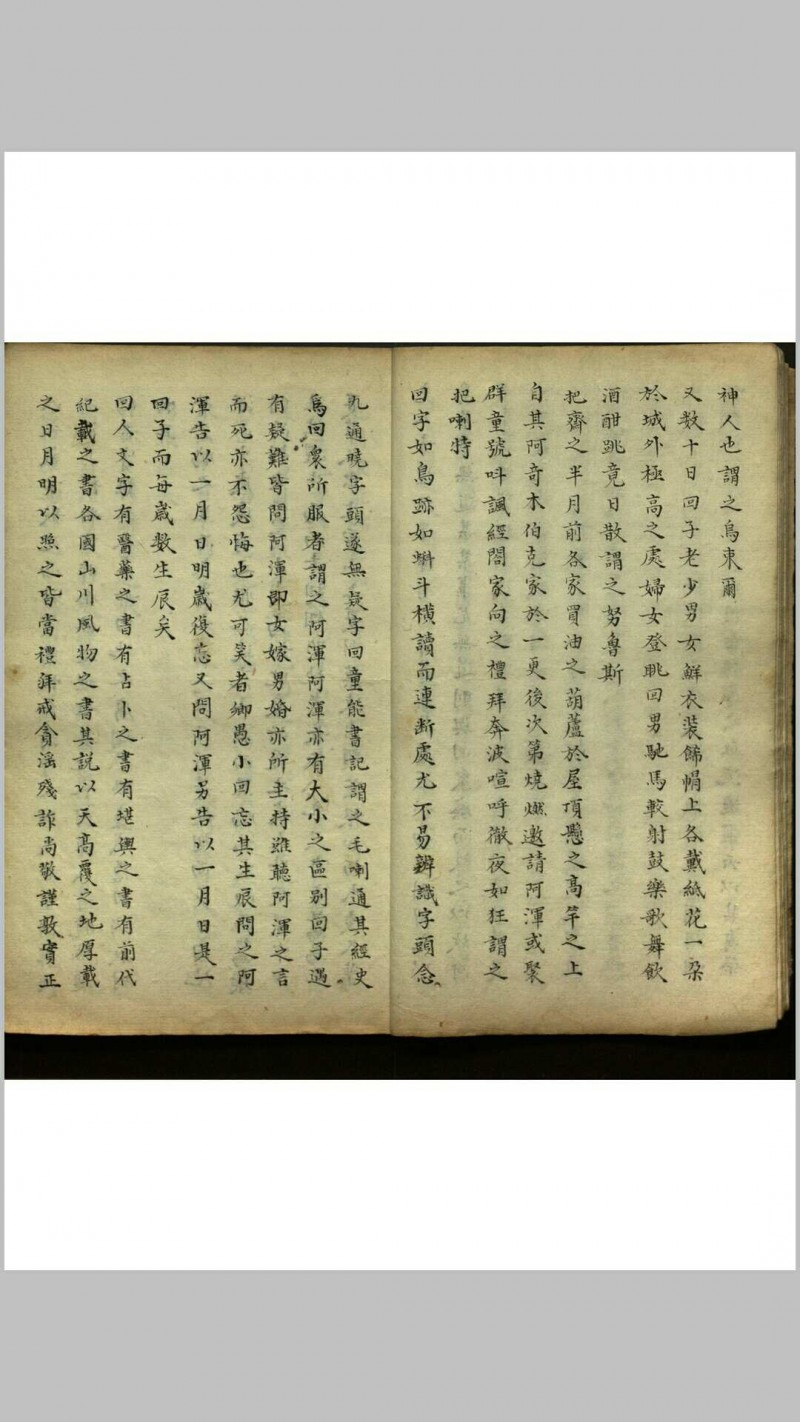 神人也謂之烏束爾
又数十日回子老少男女鮮衣裝飾帽上各戴紙花一朶
於城外極高之處婦女登眺回男馳馬較射鼓樂歌舞飲
酒酣跳竟日散謂之努魯斯
把齊之半月前各家買油之葫蘆於屋頂懸之高竿之上
自其阿奇木伯克家於一更後次第燒燃邀請阿渾或聚
群童號呌諷經閤家向之禮拜奔波喧呼徹夜如狂謂之
把喇特
回字如鳥跡如蝌斗橫讀而連断處尤不易辨識字頭念
九通曉字頭遂無疑字回童能書記謂之毛喇通其經史
爲回衆所服者謂之阿渾阿渾亦有大小之區别回子遇
有疑難皆問阿渾即女嫁男婚亦所主持雖聽阿渾之言
而死亦不怨悔也尤可笑者鄉愚小回忘其生辰問之阿
渾告以一月日明歲復忘又問阿渾另告以一月日是一
回子而每歲数生辰矣
回人文字有醫藥之書有占卜之書有堪輿之書有前代
紀載之書各國山川風物之書其説以天高覆之地厚載
之日月明以照之皆當禮拜戒貪滛殘詐尚敬謹敦實正